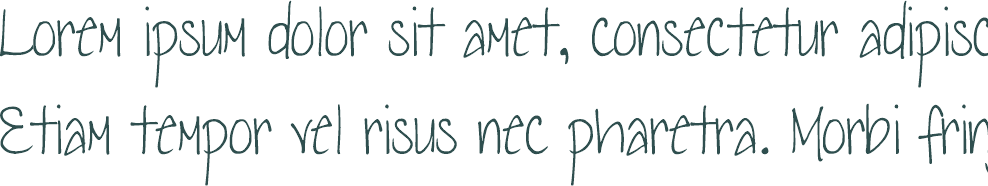 Lorem ipsum dolor sit amet, consectetur adipisc
Etiam tempor vel risus nec pharetra. Morbi fring